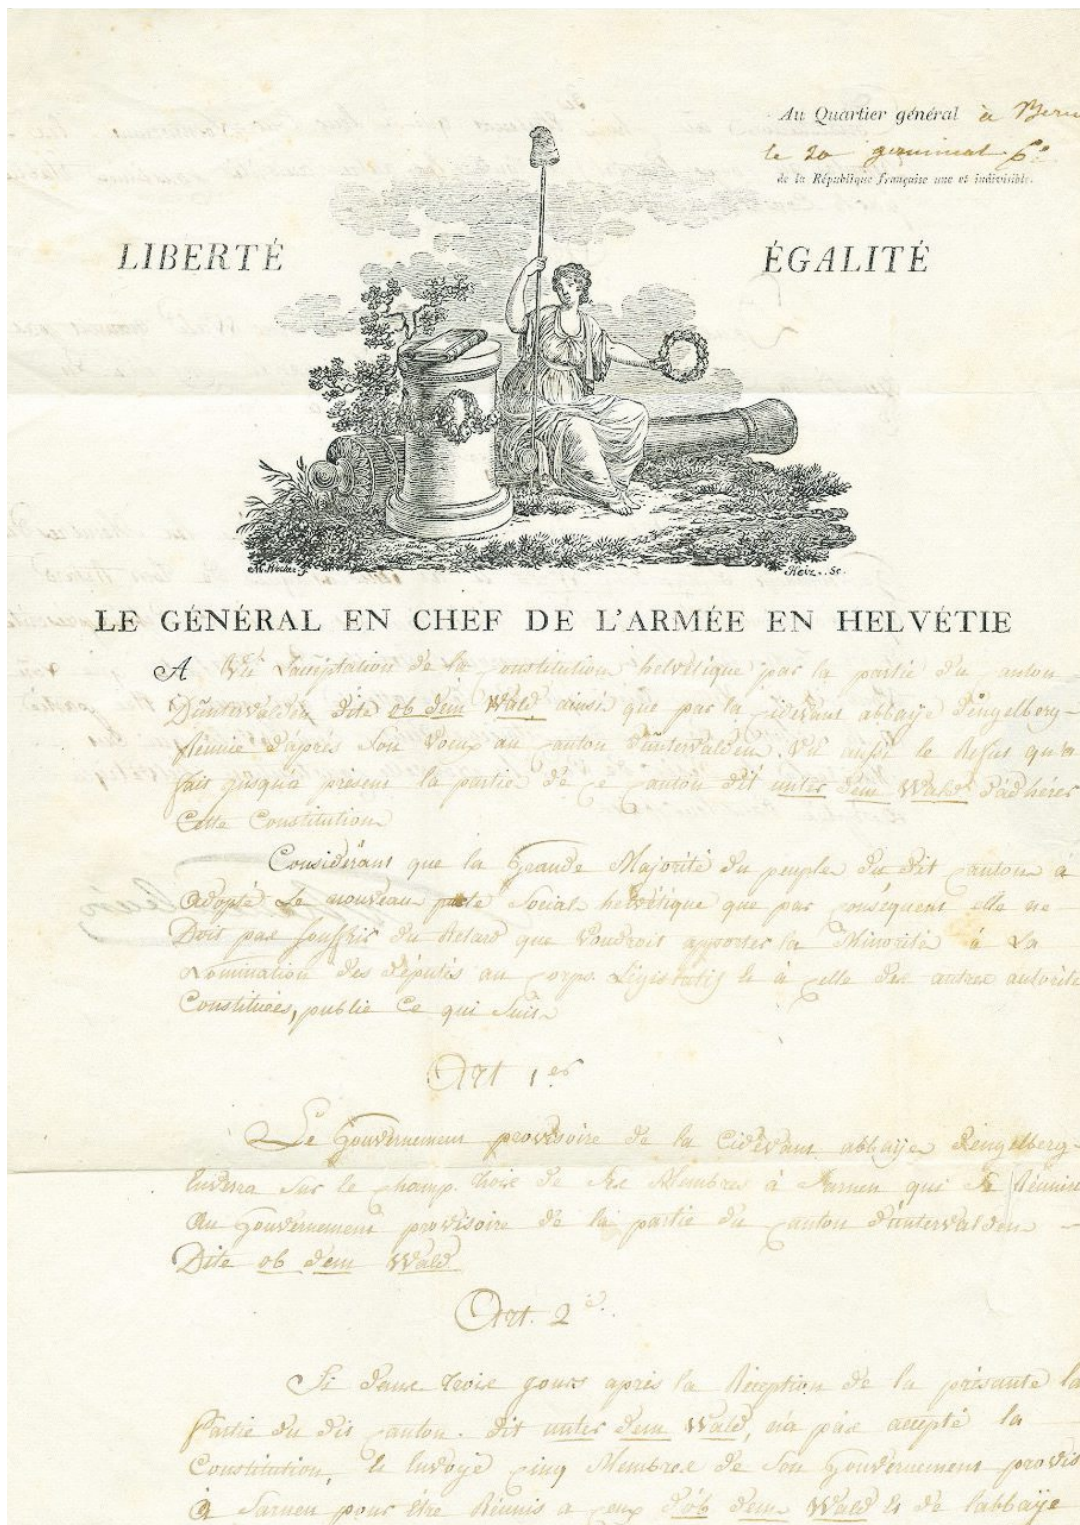 Au Quartier général à Bern
le 20 germinal 6e
de la République française une et indivisible.
LIBERTÉ ÉGALITÉ
LE GÉNÉRAL EN CHEF DE L'ARMÉE EN HELVÉTIE
A Vû L'acceptation de la Constitution helvétique par la partie du Canton
D'untervalden dite ob dem Wald ainsi que par la cidevant abbaÿe D'engelberg
Réunie d'après Son Voeux au Canton d'untervalden. Vû aussi le Refus qu'a
fait jusqu'a présent la partie de ce Canton dit unter dem Wald d'adhérer
Cette Constitution
Considérant que la Grande Majorité du peuple du dit Canton à
adopté Le nouveau pacte Social helvétique que par conséquent elle ne
Doit pas Souffrir du Retard que Voudroit apporter la Minorité à La
Nomination des députés au Corps Législatif & à celle des autres autorité
Constituées, publie Ce qui Suit
Art 1er
Le Gouvernement provisoire de la Cidevant abbaÿe D'engelberg
Enverra Sur le Champ trois de Ses Membres à Sarnen qui Se Réunir
Au Gouvernement provisoire de la partie du Canton d'untervalden
Dite ob dem Wald
Art. 2e.
Si dans trois jours après la Réception de la présente la
Partie du dit Canton. dit unter dem Wald, n'a pas accepté la
Constitution, & Envoyé Cinq Membres de Son Gouvernement provis
à Sarnen pour être Réunis a Ceux d'ob dem Wald & de l'abbaÿe